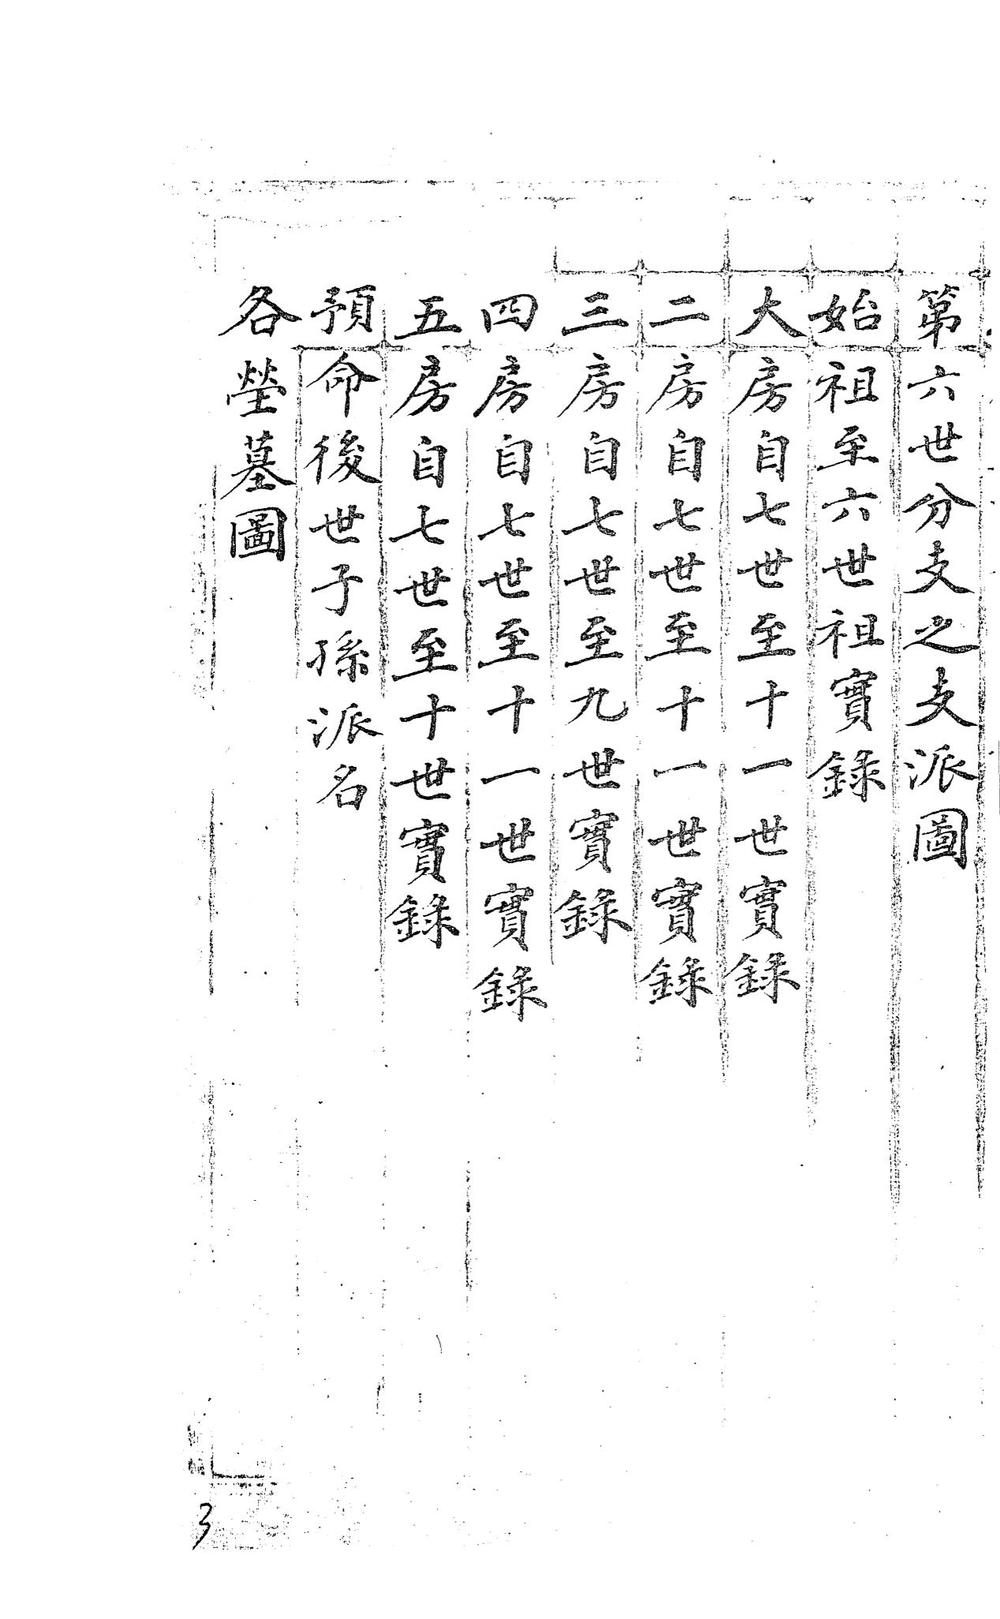 第六世分支之支派圖
始祖至六世祖實錄
大房自七世至十一世實錄
二房自七世至十一世實錄
三房自七世至九世實錄
四房自七世至十一世實錄
五房自七世至十世實錄
預命後世子孫派名
各塋墓圖
3